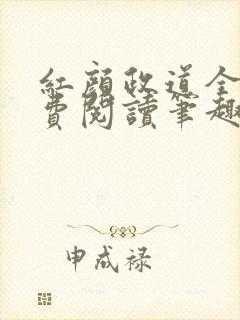 紅顏政道全
費閱讀筆趣
申成禄